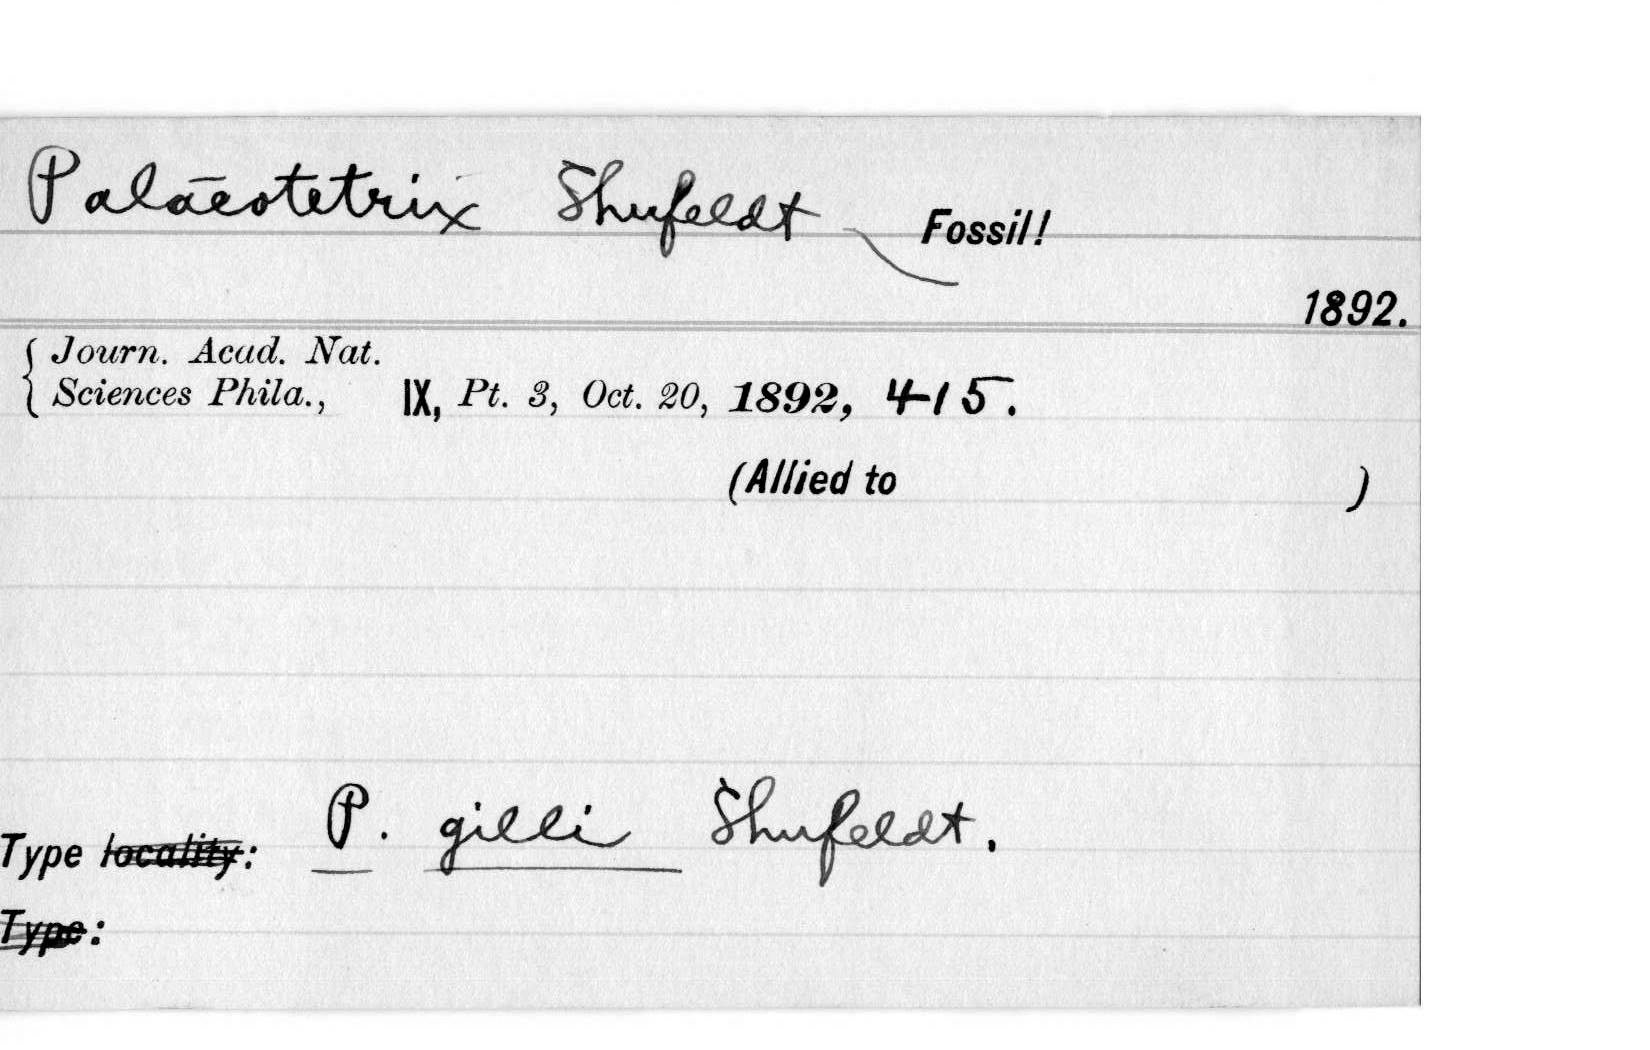 Palaeotetrix Shufeldt Fossil!
1892.
Journ. Acad. Nat.
Sciences Phila., IX, Pt. 3, Oct. 20, 1892, 415.
(Allied to )
Type locality: P. gilli Shufeldt.
Type: